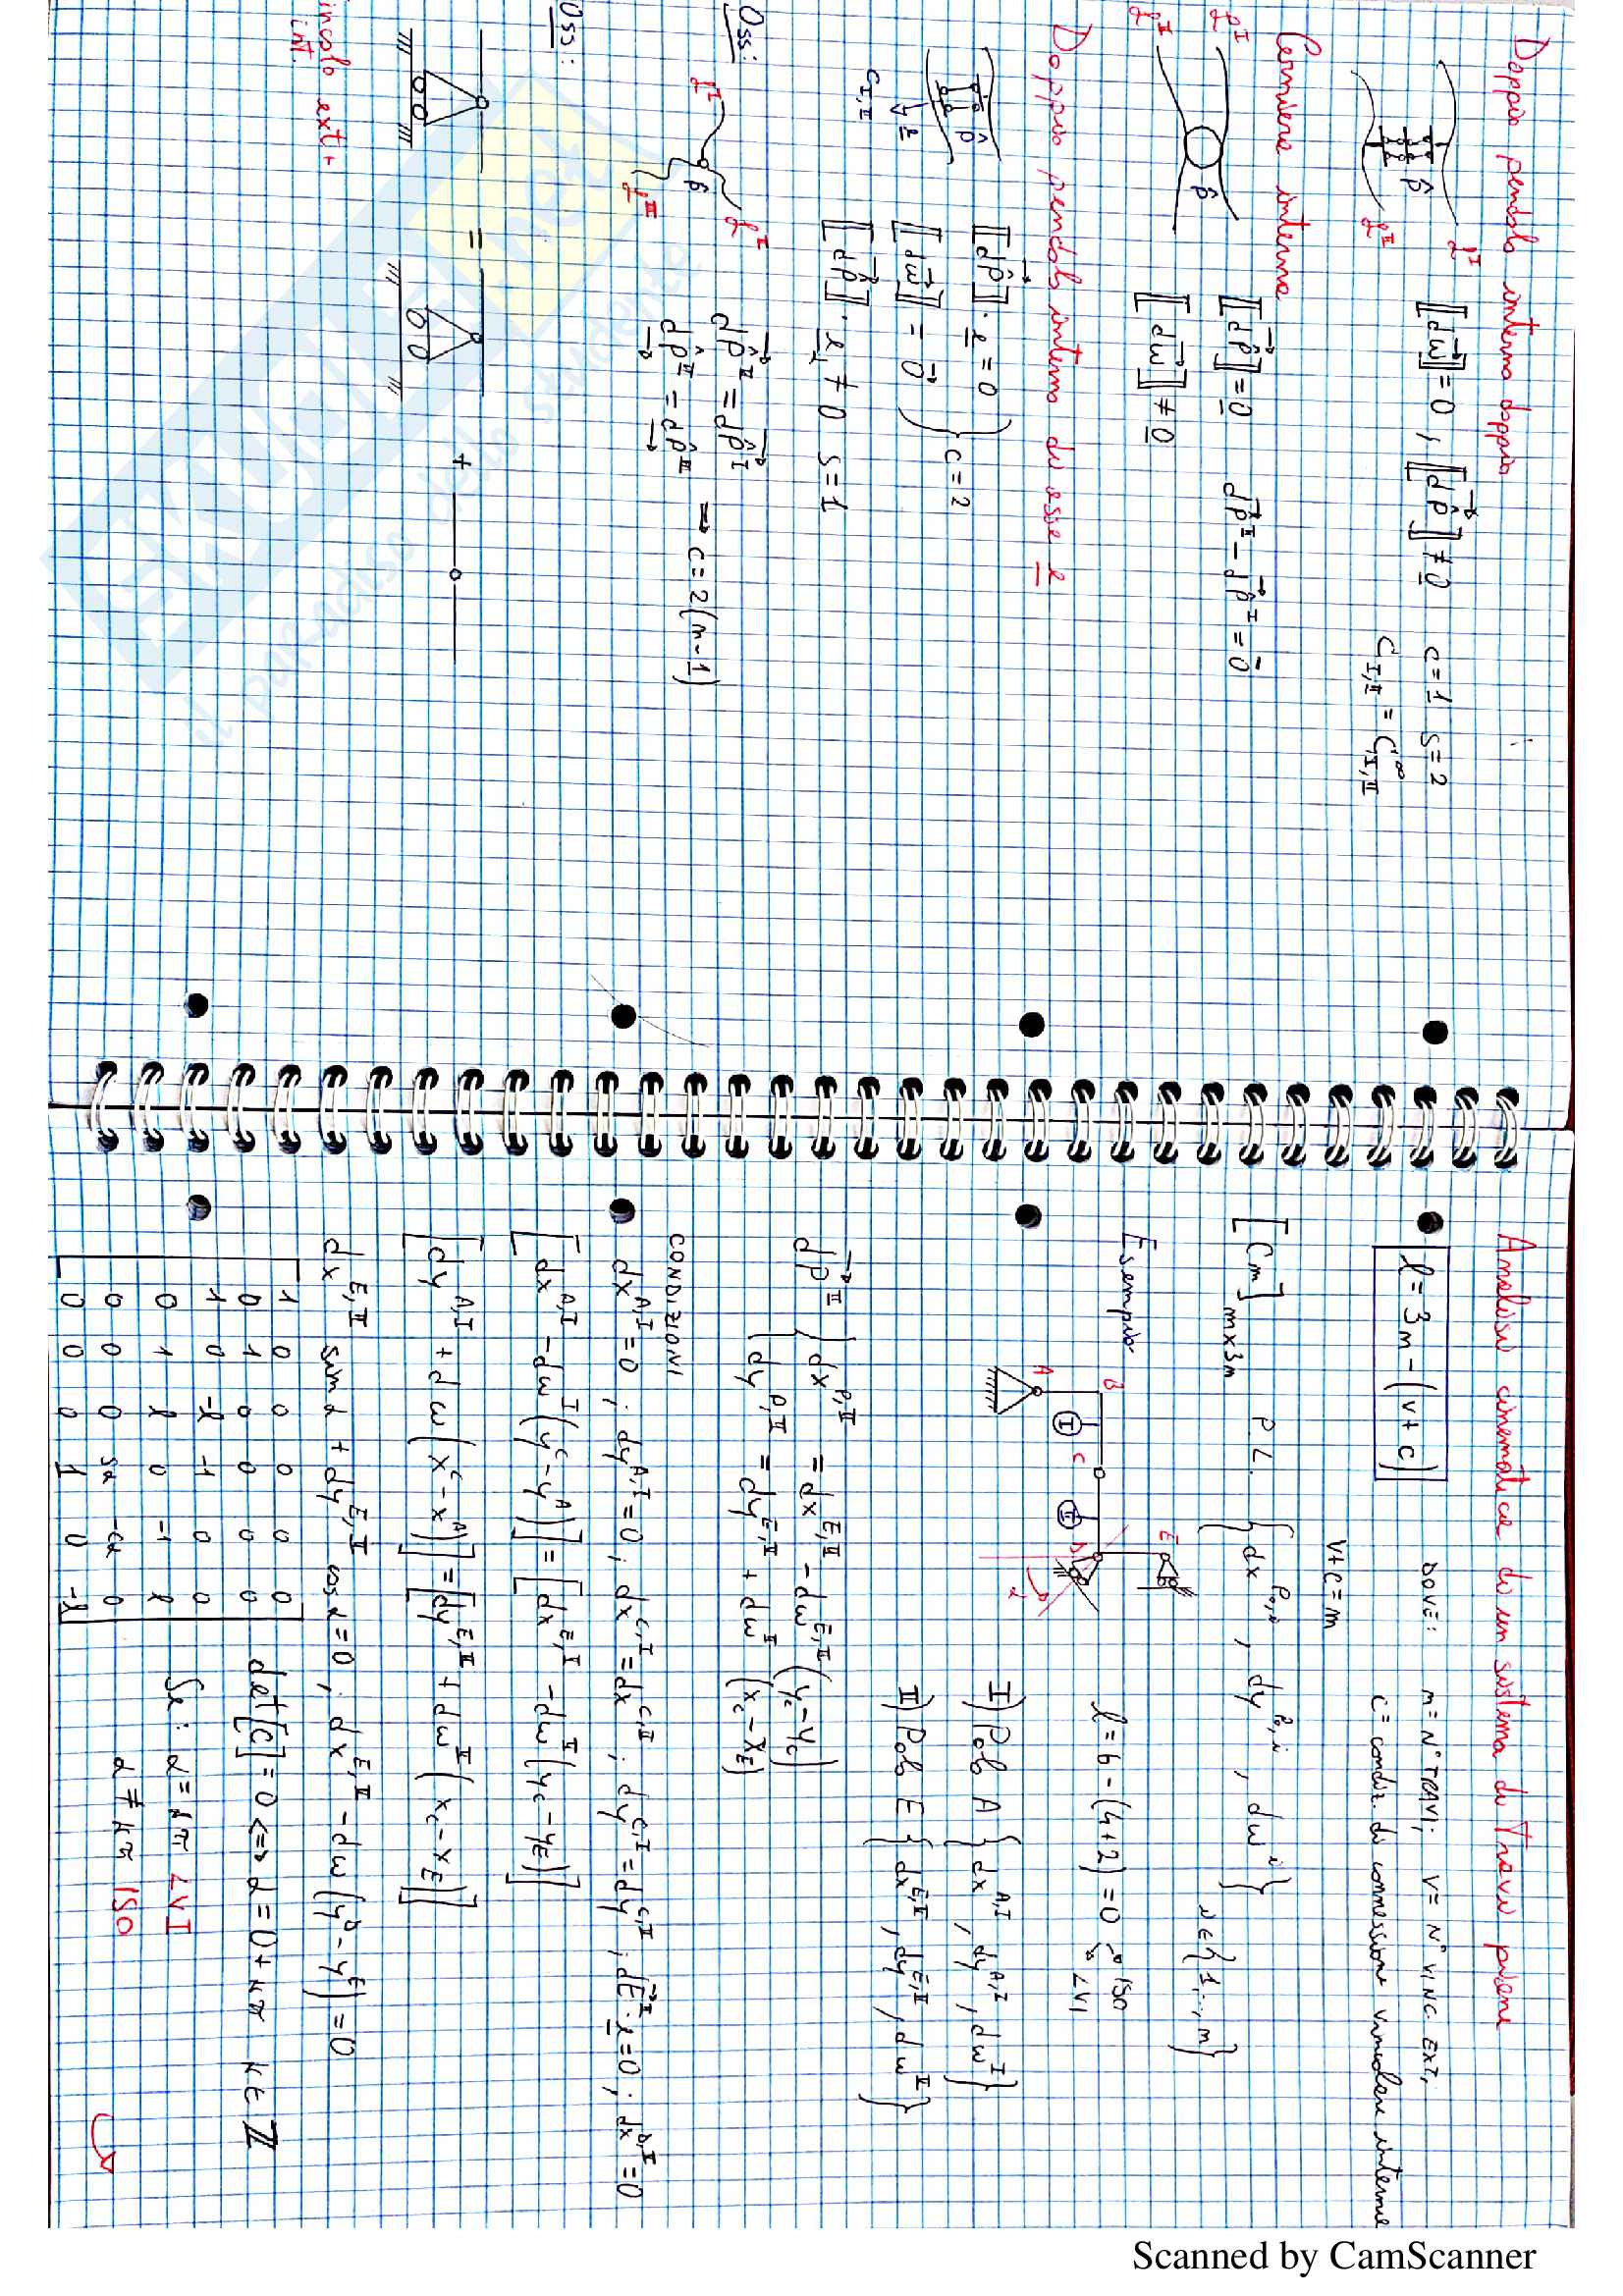 Doppio pendolo interno doppio
ℒ^I
ℒ^II
P̂
[[dω]] = 0 , [[dP̂]] ≠ 0 c=1 s=2
C_I,II = C^∞_I,II
Cerniera interna
ℒ^I
ℒ^II
P̂
[[dP̂]] = 0 dP̂^I - dP̂^I = 0
[[dω]] ≠ 0
Doppio pendolo interno di asse e
P̂
e
C_I,II
[[dP̂]] · e = 0
[[dω]] = 0 } c=2
[[dP̂]] · e_⊥ ≠ 0 s=1
Oss:
ℒ^I
ℒ^II
P̂
dP̂^II = dP̂^I
dP̂^II = dP̂^III ⇒ c = 2(m-1)
Oss:
= +
incolo ext +
int.
Analisi cinematica di un sistema di Travi piane
ℓ = 3m - (v + c)
DOVE: m = N° TRAVI; v = N° VINC. EXT,
c = condiz. di connessione vincolare interne
v+c = m
[Cm] m×3m P.L. { dx^P0,i , dy^P0,i , dω^i } i ∈ {1..., m}
Esempio
A
B
C
D
E
I
II
α
ℓ = 6 - (4+2) = 0 ISO
LVI
I) Polo A { dx^A,I , dy^A,I , dω^I }
II) Polo E { dx^E,II , dy^E,II , dω^II }
dP^II { dx^P,II = dx^E,II - dω^E,II (y_c - y_C)
dy^P,II = dy^E,II + dω^II (x_c - x_E)
CONDIZIONI
dx^A,I = 0 ; dy^A,I = 0 ; dx^C,I = dx^C,II ; dy^C,I = dy^C,II ; dE^II · e = 0 ; dx^D,II = 0
[dx^A,I - dω^I (y^C - y^A)] = [dx^E,II - dω^II (y_C - y_E)]
[dy^A,I + dω (x^C - x^A)] = [dy^E,II + dω^II (x_C - x_E)]
dx^E,II sin α + dy^E,II cos α = 0 ; dx^E,II - dω (y^D - y^E) = 0
1 0 0 0 0 0
0 1 0 0 0 0
1 0 -ℓ -1 0 0
0 1 ℓ 0 -1 ℓ
0 0 0 sα -cα 0
0 0 0 1 0 -ℓ
det[C] = 0 <=> α = 0 + kπ k ∈ ℤ
Se: α = kπ LVI
α ≠ kπ ISO
SKUOLA.net
il paradiso dello studente
Scanned by CamScanner